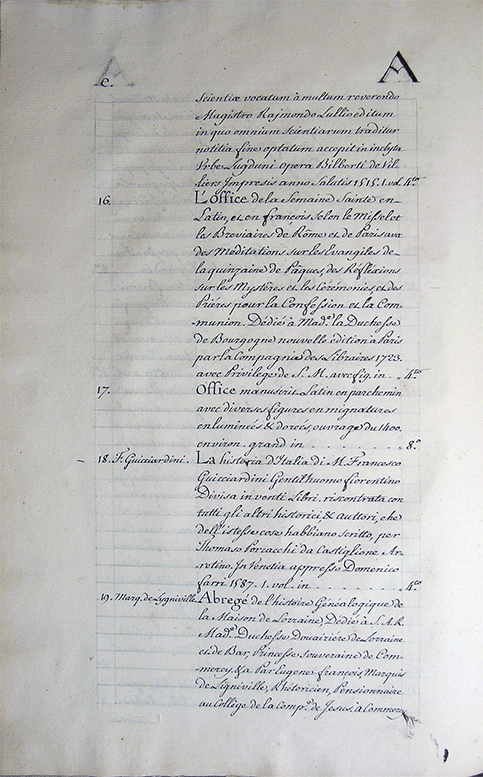 e. A
Scientiæ vocatum à multum reverendo
Magistro Rajmondo Lullio editum
in quo omnium Scientiarum traditur
notitia fine optatum accepit in inclyta
Vrbe Lugduni opera Bilberti de Vil-
liers Impresis anno Salutis 1515. 1. vol. 4to
16. L'Office de la Semaine Sainte en
Latin, et en françois selon le Missel et
les Breviaires de Rôme et de Paris avec
des Méditations sur les Evangiles de
la quinzaine de Pâques, des Réfléxions
sur les Mystères et les Cérémonies, et des
Priéres pour la Confession et la Com-
munion. Dédié à Made la Duchesse
de Bourgogne nouvelle édition à Paris
par la Compagnie des Libraires 1723.
avec Privilege de S. M. avec fig. in . . 4to
17. Office manuscrit Latin en parchemin
avec diverses figures en mignatures
enluminées & doreés ouvrage du 1400.
environ. grand in . . . . . . . . 8o
18. F. Guicciardini. La historia d'Italia di M. Francesco
Guicciardini Gentilhuomo fiorentino
Divisa in venti Libri. riscontrata con
tutti gli altri historici, & Auttori, che
dell'istesse cose habbiano scritto, per
Thomaso Porcacchi da Castiglione Ar-
retino. In Venetia appresso Domenico
farri 1587. 1. vol. in . . . . . . . 4to
19. Marq. de Ligniville. Abregé de l'histoire Généalogique de
la Maison de Lorraine, Dédié à S. A. R.
Made Duchesse Douairiére de Lorraine
et de Bar, Princesse Souveraine de Com-
mercy, &a Par Eugene françois Marquis
de Ligniville, Rhétoricien, Pensionnaire
au Collège de la Compe de Jesus, à Commercy